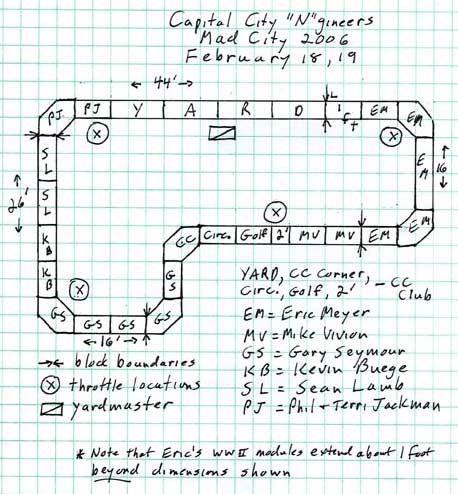 Capital City "N"gineers
Mad City 2006
February 18, 19
44'
PJ PJ Y A R D 1 ft EM EM
L
SL
SL
KB
KB
GS GS GS GS
GS
CC Circ. Golf 2' MV MV EM EM
EM
26'
16
16'
YARD, CC Corner, - CC
Circ., Golf, 2' Club
EM = Eric Meyer
MV = Mike Vivion
GS = Gary Seymour
KB = Kevin Buege
SL = Sean Lamb
PJ = Phil + Terri Jackman
block boundaries
throttle locations
yardmaster
* Note that Eric's WWII modules extend about 1 foot
beyond dimensions shown